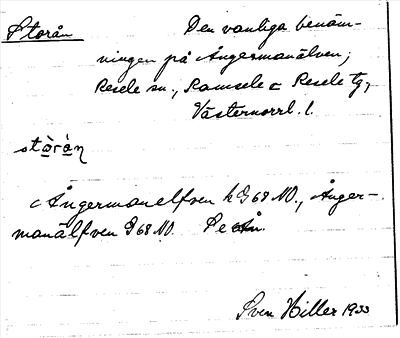 Storån Den vanliga benäm-
ningen på Ångermanälven;
Resele sn., Ramsele o Resele tg,
Västernorrl. l.
stòrån
Ångermanelfven h G 68 NO., Ånger-
manälfven G 68 NO. Se Ån.
Sven Hiller 1933